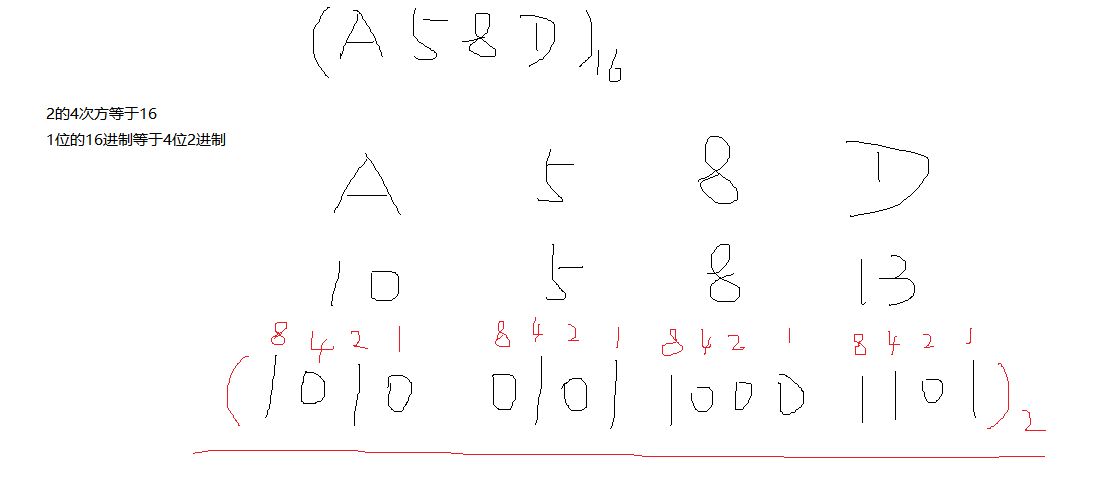 (A58D)16
2的4次方等于16
1位的16进制等于4位2进制
A 5 8 D
10 5 8 13
8 4 2 1 8 4 2 1 8 4 2 1 8 4 2 1
(1010 0101 1000 1101)2